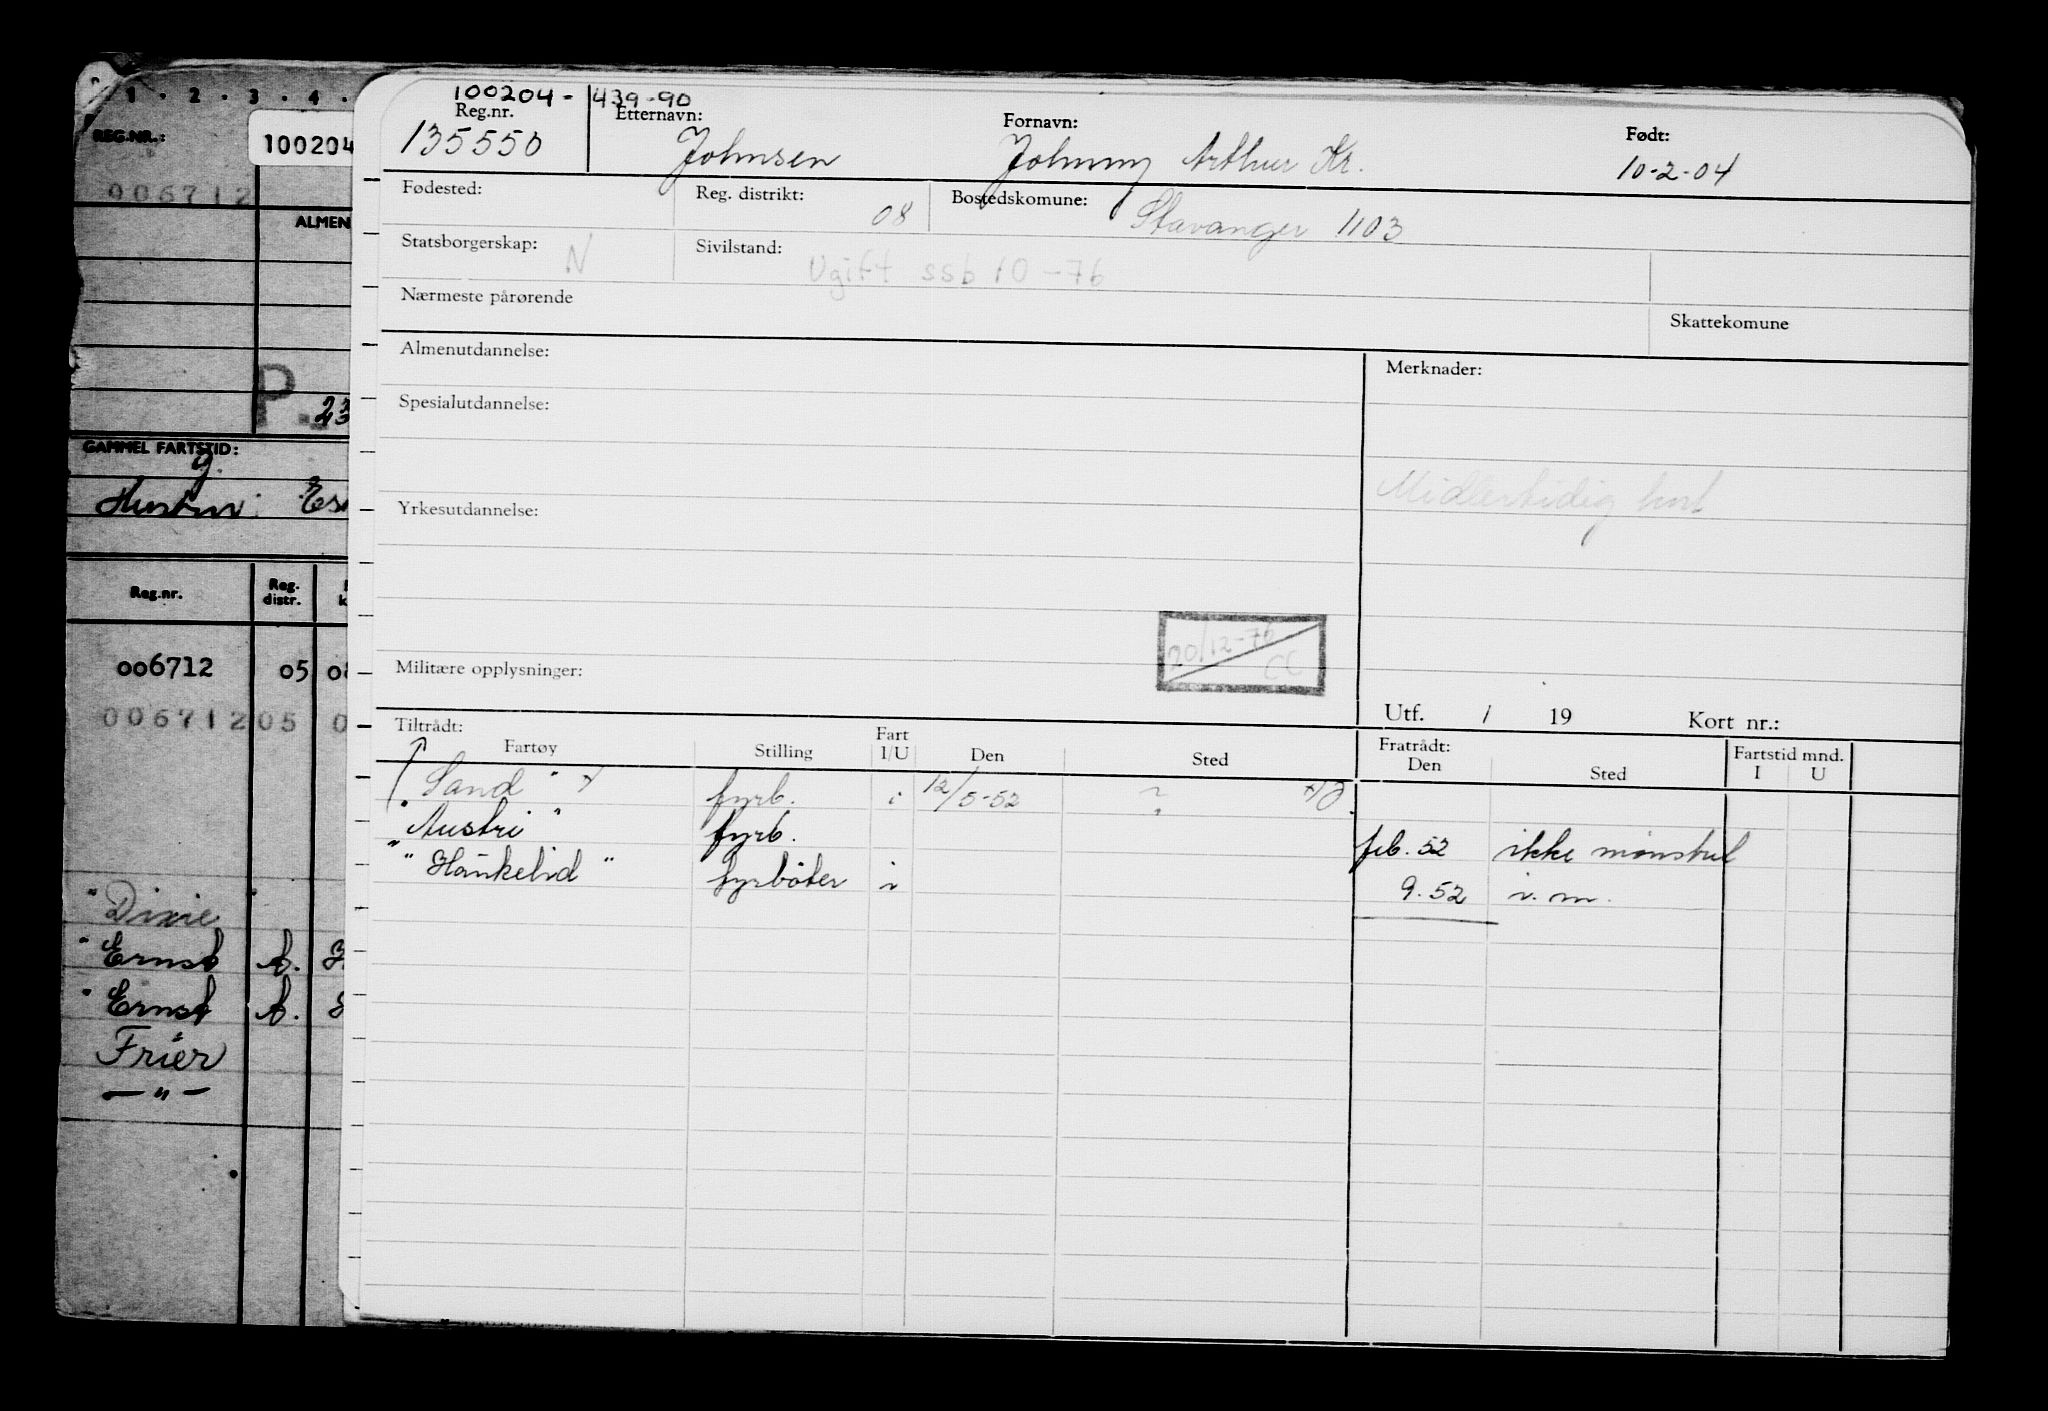 1 · 2 · 3 · 4 ·
REG.NR.:
100204
006712
ALMEN
P.
23
GAMMEL FARTSTID:
g.
Hustru: Es
Reg.nr. Reg. distr. k
006712 05 0
006712 05 0
"Dixie"
"Ernst A.
"Ernst A.
Frier
— " —
100204 - 439-90
Reg.nr. Etternavn: Fornavn: Født:
135550 Johnsen Johnny Arthur Kr. 10-2-04
Fødested: Reg. distrikt: 08 Bostedskomune: Stavanger 1103
Statsborgerskap: N Sivilstand: Ugift ssb 10-76
Nærmeste pårørende
Skattekomune
Almenutdannelse: Merknader:
Spesialutdannelse:
Midlertidig kort
Yrkesutdannelse:
20/12-76 CC
Militære opplysninger:
Utf. / 19 Kort nr.:
Tiltrådt: Fratrådt: Fartstid mnd.
Fartøy Stilling Fart I/U Den Sted Den Sted I U
Sand " fyrb. i 12/5-52 ?
"Austri" fyrb. feb. 52 ikke mønstret
"Haukelid" fyrbøter i 9.52 i. m.